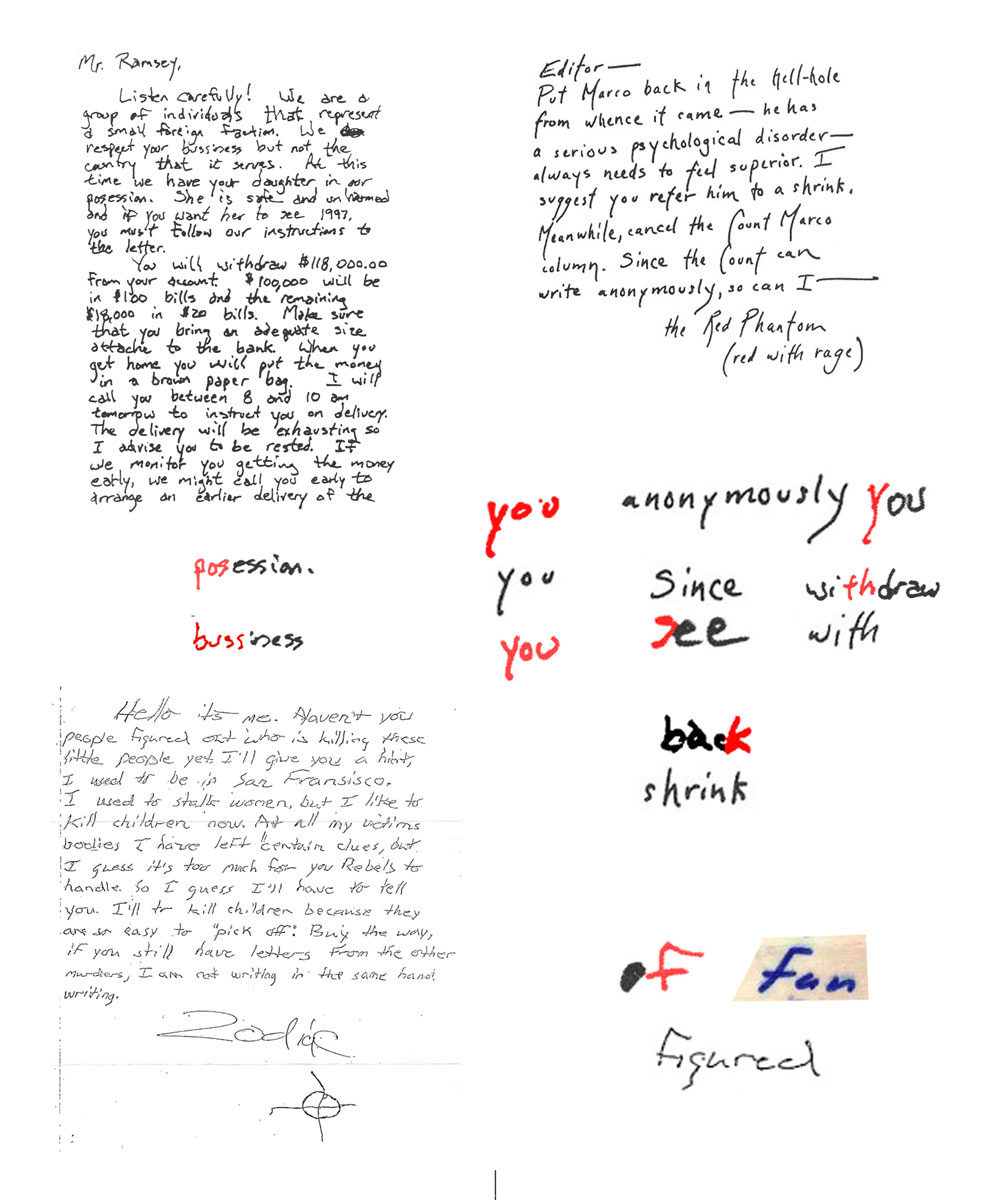 Mr. Ramsey,
Listen carefully! We are a
group of individuals that represent
a small foreign faction. We
respect your bussiness but not the
country that it serves. At this
time we have your daughter in our
posession. She is safe and unharmed
and if you want her to see 1997,
you must follow our instructions to
the letter.
You will withdraw $118,000.00
from your account. $100,000 will be
in $100 bills and the remaining
$18,000 in $20 bills. Make sure
that you bring an adequate size
attache to the bank. When you
get home you will put the money
in a brown paper bag. I will
call you between 8 and 10 am
tomorrow to instruct you on delivery.
The delivery will be exhausting so
I advise you to be rested. If
we monitor you getting the money
early, we might call you early to
arrange an earlier delivery of the
Editor—
Put Marco back in the hell-hole
from whence it came — he has
a serious psychological disorder—
always needs to feel superior. I
suggest you refer him to a shrink.
Meanwhile, cancel the Count Marco
column. Since the Count can
write anonymously, so can I—
the Red Phantom
(red with rage)
posession.
bussiness
you anonymously you
you Since withdraw
you see with
back
shrink
Hello its me. Haven't you
people figured out who is killing these
little people yet I'll give you a hint,
I used to be in San Fransisco.
I used to stalk women, but I like to
kill children now. At all my victims
bodies I have left "certain clues, but
I guess it's too much for you Rebels to
handle. So I guess I'll have to tell
you. I'll tr kill children because they
are so easy to "pick off". Buy the way,
if you still have letters from the other
murders, I am not writing in the same hand
writing.
Zodiac
of fan
figured